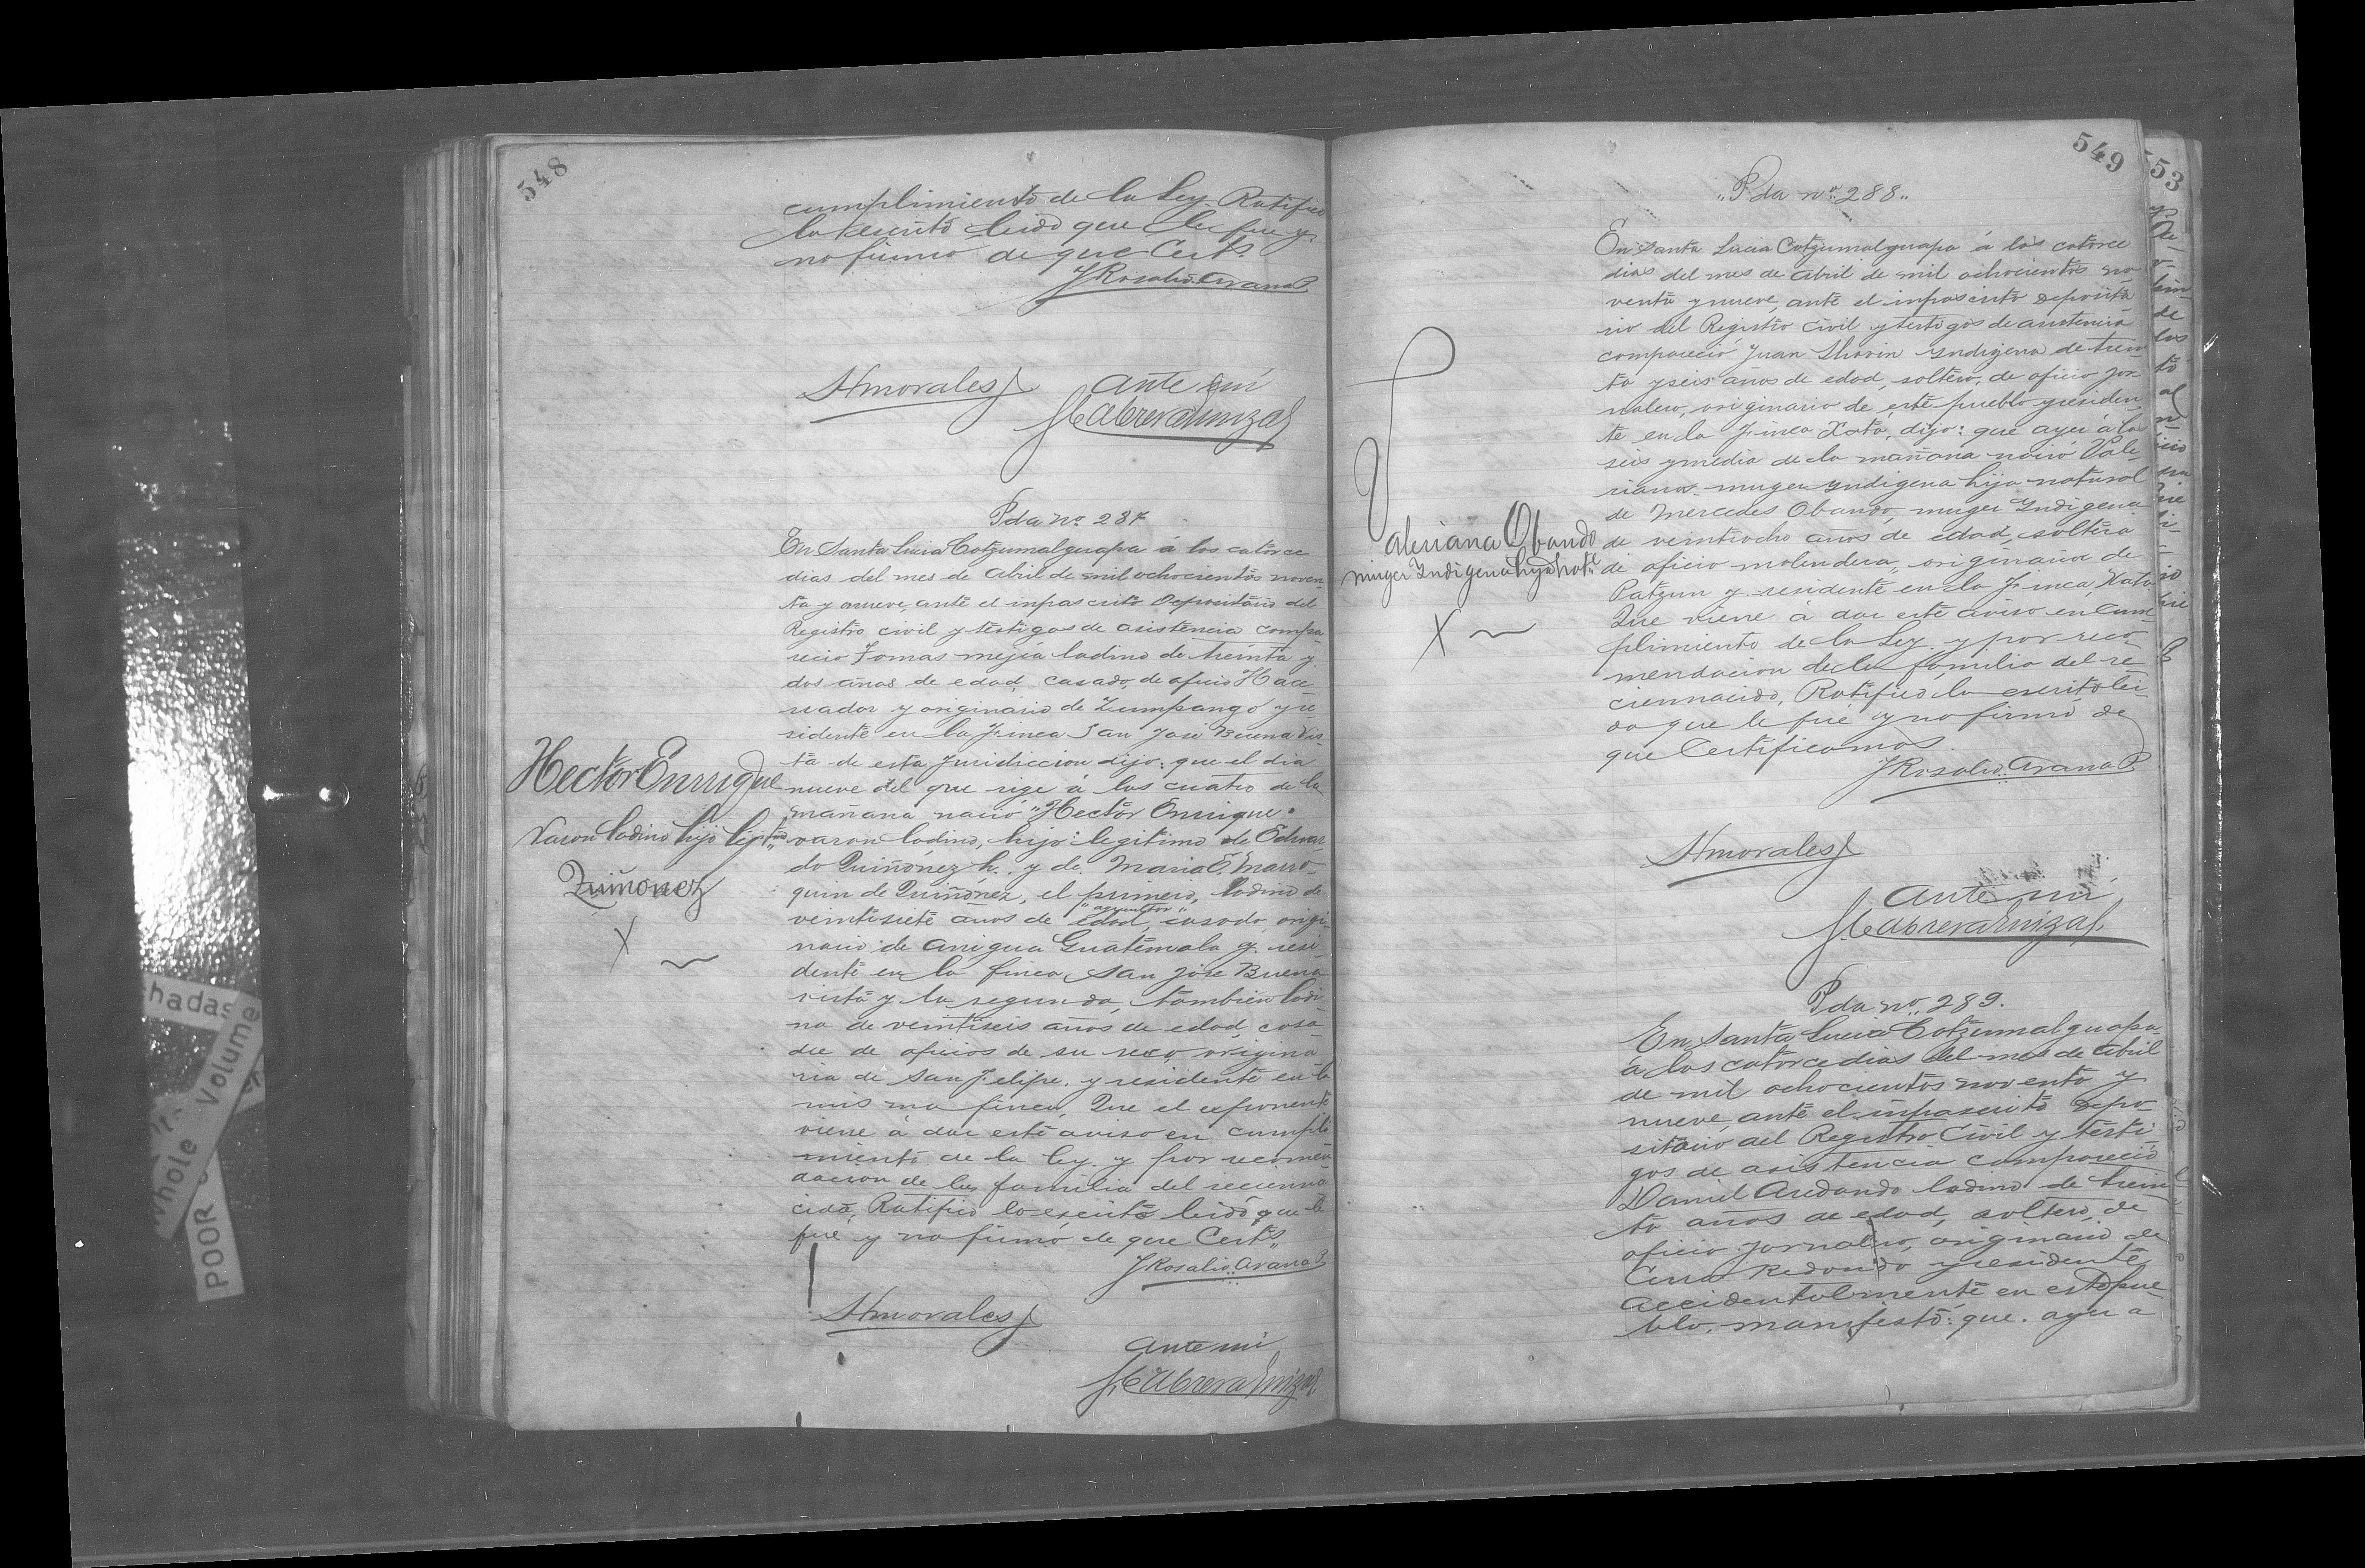 548
cumplimiento de la Ley. Ratificó
lo escrito leido que le fue y
no firmó de que Certs.
J Rosalio Arana P.
H morales
Ante mi
Pda no. 287
En Santa Lucia Cotzumalguapa á los catorce
dias del mes de Abril de mil ochocientos noven-
ta y nueve, ante el infrascrito Depositario del
Registro civil y testigos de asistencia compa
recio Tomas mejia ladino de treinta y
dos años de edad, casado, de oficio Hace
reador y originario de Zumpango y re
sidente en la Finca San Jose Buena Vis-
ta de esta Juridiccion dijo: que el dia
nueve del que rige á las cuatro de la
mañana nació "Hector Enrique"
varon ladino, hijo legitimo de Eduar
do Quiñónez h. y de Maria E. Marro-
quin de Quiñónez, el primero, ladino de
veintisiete años de edad, "agricultor" casado, origi-
nario de Anigua Guatemala y resi
dente en la finca San Jose Buena
vista y la segunda, tambien ladi
na de veintiseis años de edad, casa
da de oficios de su sexo, origina
ria de San Felipe y residente en la
misma finca, Que el esponente
viene á dar este aviso en cumpli
miento de la ley. y por recomen
dacion de la familia del recienna
cido, Ratificó lo escrito leido que le
fue y no firmó de que Certs.
J Rosalio Arana P.
H morales
Ante mi
Hector Enrique
Varon ladino hijo legtmo
Quiñonez
X
549
"Pda no. 288"
En Santa Lucia Cotzumalguapa á los catorce
dias del mes de Abril de mil ochocientos no-
venta y nueve, ante el infrascrito deposita
rio del Registro Civil y testigos de asistencia
compareció Juan Shovin Yndigena de trein
ta y seis años de edad, soltero, de oficio jor-
nalero, originario de este pueblo y residen
te en la Finca Xata, dijo: que ayer á las
seis y media de la mañana nació Vale-
riana muger Yndigena hija natural
de Mercedes Obando, muger Yndigena
de veintiocho años de edad, soltera
de oficio molendera, originaria de
Patzun y residente en la Finca Xata
Que viene á dar este aviso en Cum-
plimiento de la Ley. y por reco-
mendacion de la familia del re-
ciennacido, Ratificó lo escrito lei-
do que le fué y no firmó de
que Certificamos.
J Rosalio Arana P.
H morales
Ante mi
Valeriana Obando
muger Yndigena hija natl
X
Pda no. 289.
En Santa Lucia Cotzumalguapa
á los catorce dias del mes de Abril
de mil ochocientos noventa y
nueve, ante el infrascrito Depo-
sitario del Registro Civil y testi-
gos de asistencia compareció
Daniel Aredondo ladino de trein
ta años de edad, soltero, de
oficio jornalero, originario de
Cerro Redondo y residente
accidentalmente en este pue
blo, manifestó: que ayer a
553
hadas
Whole Volume
POOR